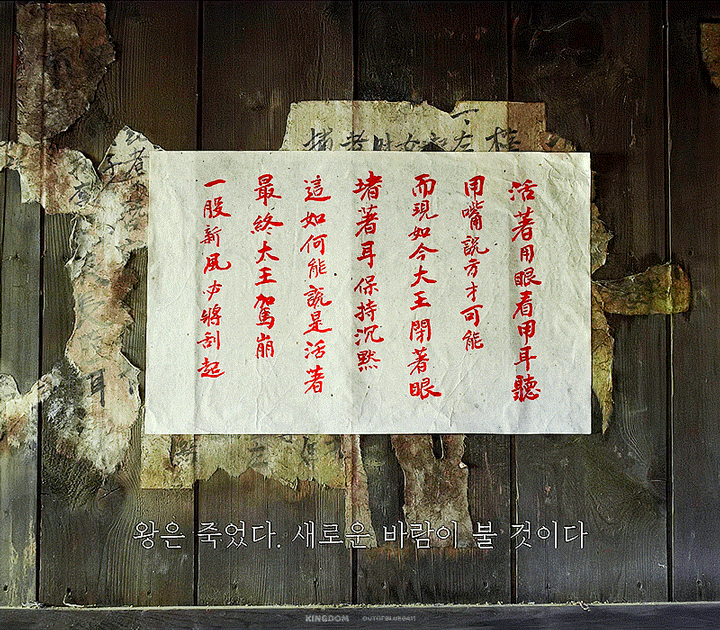 活著用眼看用耳聽
用嘴說方才可能
而現如今大王閉著眼
堵著耳保持沉默
這如何能說是活著
最終大王駕崩
一股新風必將刮起
왕은 죽었다. 새로운 바람이 불 것이다
KINGDOM